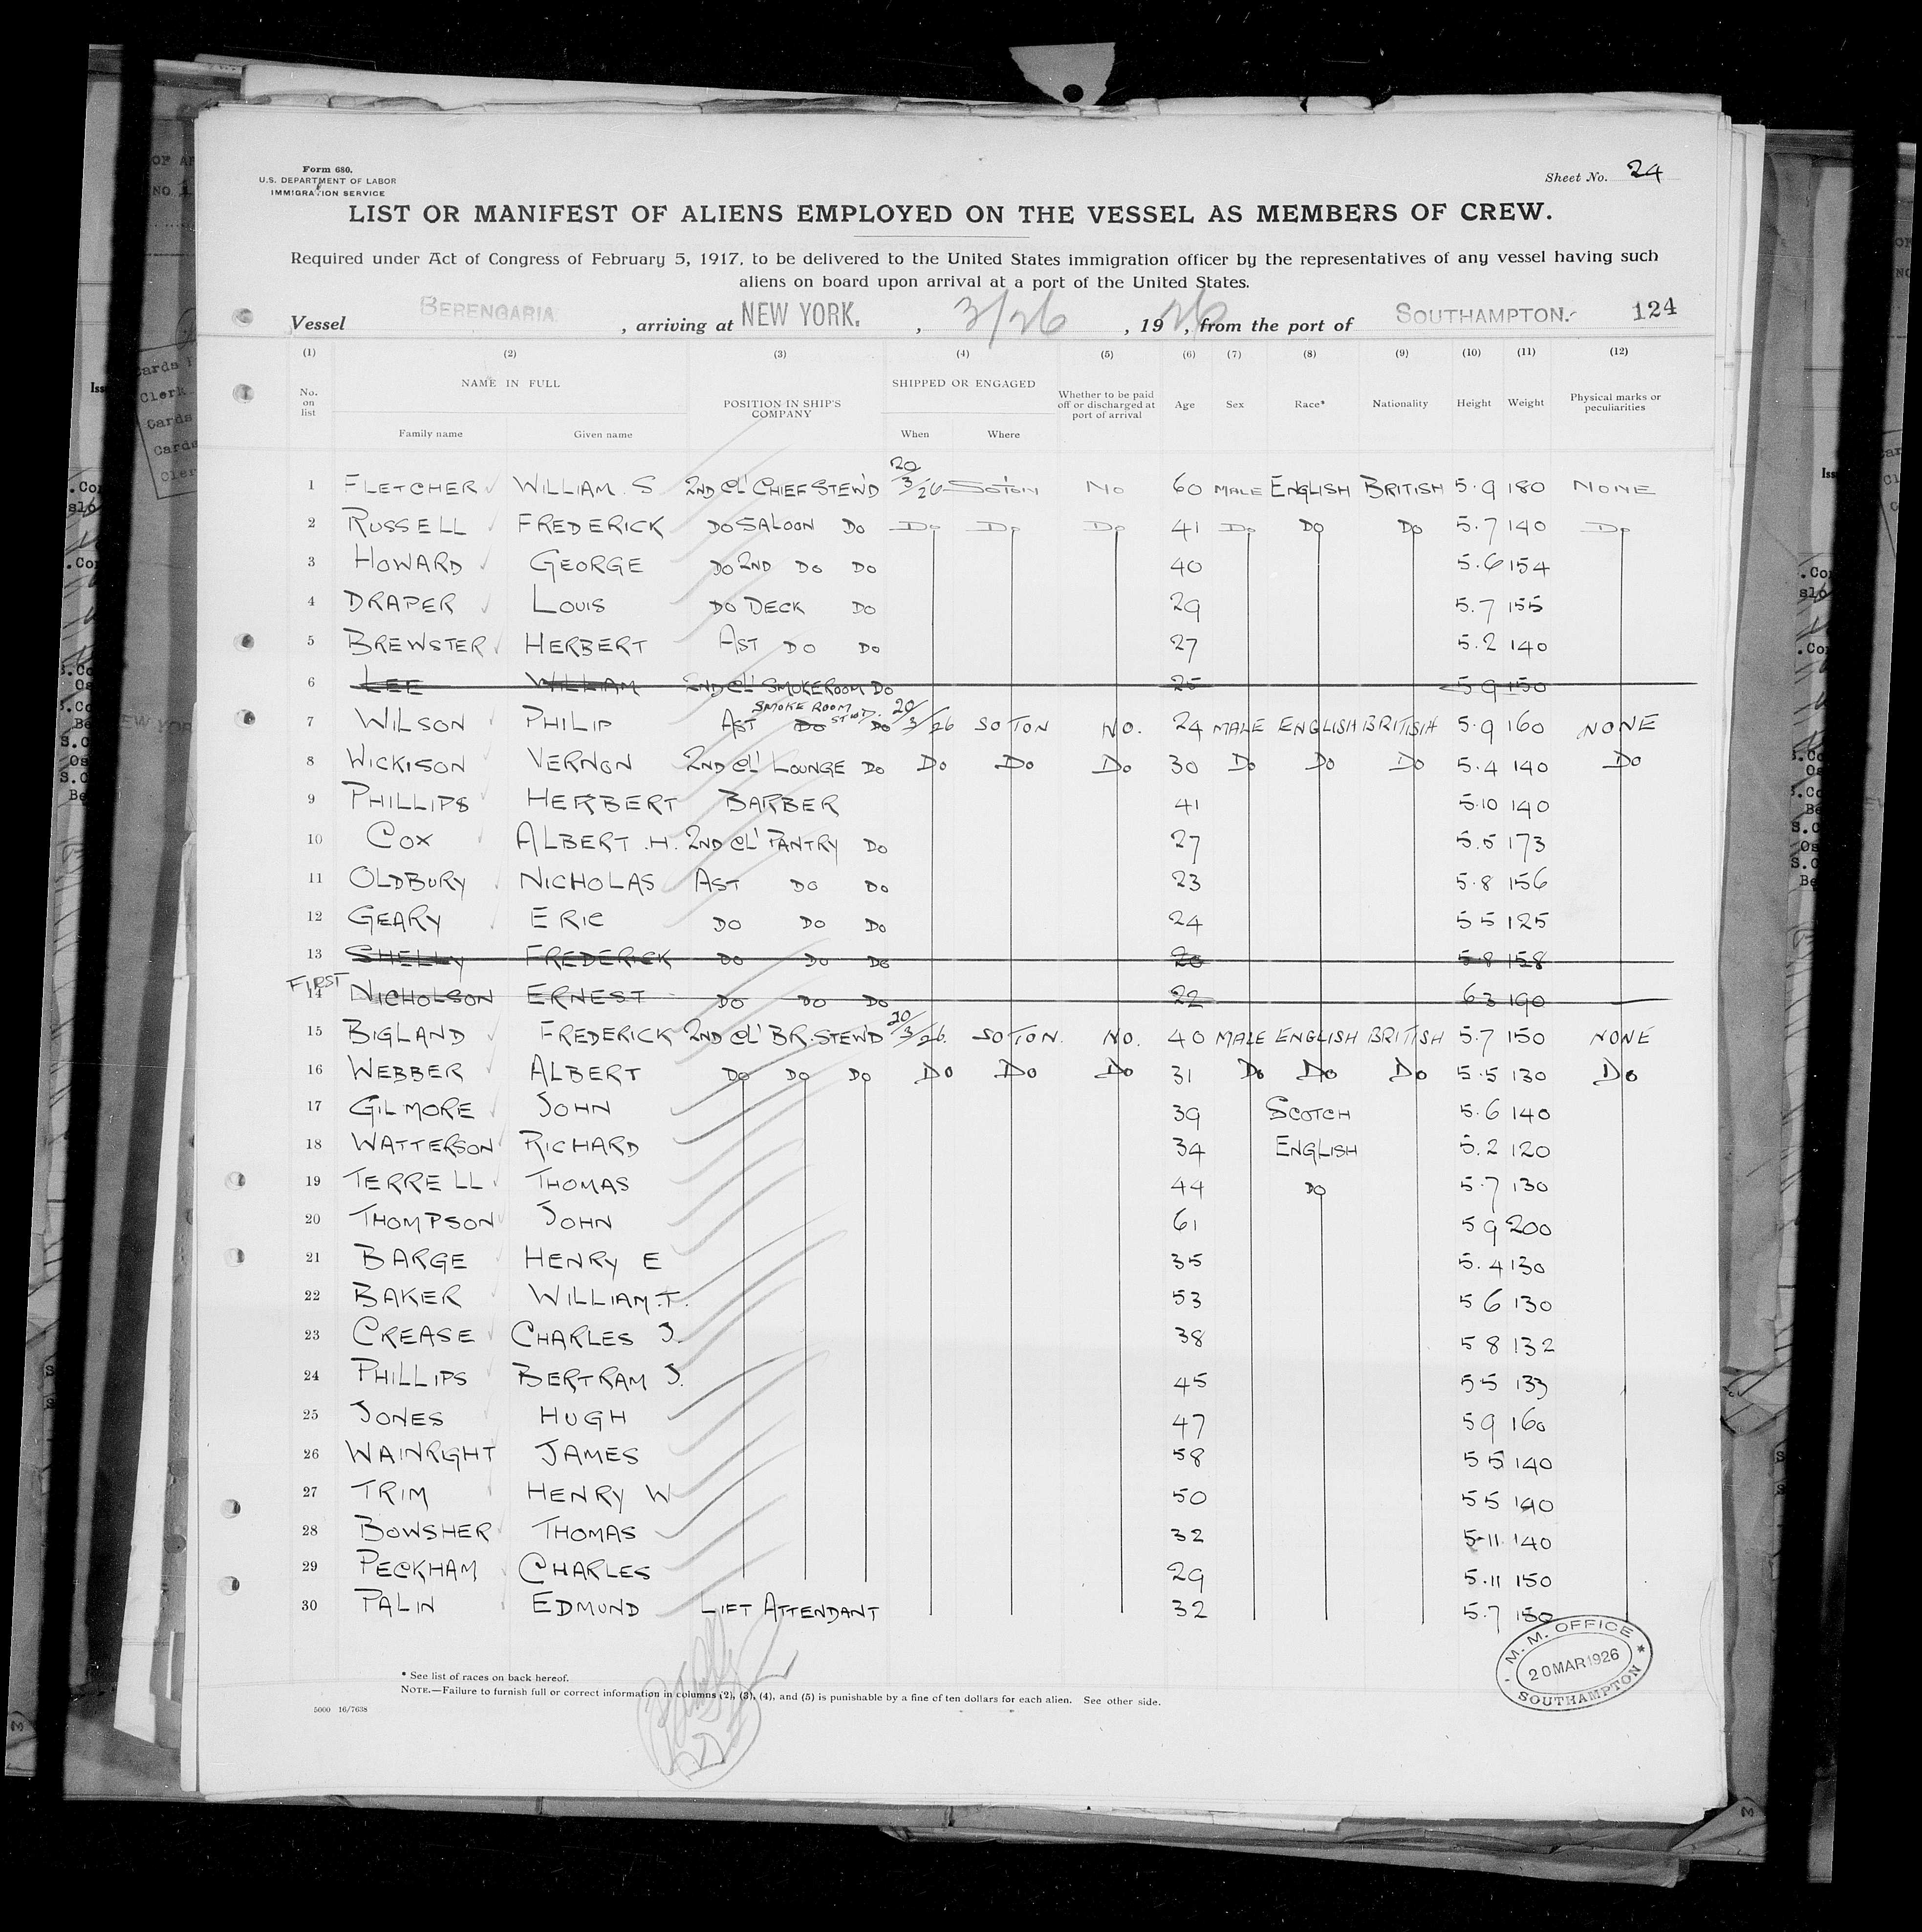 Form 680.
U.S. DEPARTMENT OF LABOR
IMMIGRATION SERVICE
Sheet No. 24
LIST OR MANIFEST OF ALIENS EMPLOYED ON THE VESSEL AS MEMBERS OF CREW.
Required under Act of Congress of February 5, 1917, to be delivered to the United States immigration officer by the representatives of any vessel having such
aliens on board upon arrival at a port of the United States.
Vessel BERENGARIA , arriving at NEW YORK. , 3/26 , 1926, from the port of SOUTHAMPTON. 124
(1) (2) (3) (4) (5) (6) (7) (8) (9) (10) (11) (12)
No. on list NAME IN FULL POSITION IN SHIP'S COMPANY SHIPPED OR ENGAGED Whether to be paid off or discharged at port of arrival Age Sex Race* Nationality Height Weight Physical marks or peculiarities
Family name Given name When Where
1 FLETCHER WILLIAM. S 2ND CL' CHIEF STEW'D 20/3/26 SOTON NO 60 MALE ENGLISH BRITISH 5.9 180 NONE
2 RUSSELL FREDERICK DO SALOON DO DO DO DO 41 DO DO DO 5.7 140 DO
3 HOWARD GEORGE DO 2ND DO DO 40 5.6 154
4 DRAPER LOUIS DO DECK DO 29 5.7 155
5 BREWSTER HERBERT AST DO DO 27 5.2 140
6 LEE WILLIAM 2ND CL' SMOKEROOM DO 25 5 9 150
7 WILSON PHILIP AST DO SMOKE ROOM STWD. DO 20/3/26 SOTON NO. 24 MALE ENGLISH BRITISH 5.9 160 NONE
8 WICKISON VERNON 2ND CL' LOUNGE DO DO DO DO 30 DO DO DO 5.4 140 DO
9 PHILLIPS HERBERT BARBER 41 5.10 140
10 COX ALBERT .H. 2ND CL' PANTRY DO 27 5.5 173
11 OLDBURY NICHOLAS AST DO DO 23 5.8 156
12 GEARY ERIC DO DO DO 24 5 5 125
13 SHELLY FREDERICK DO DO DO 20 5.8 158
FIRST
14 NICHOLSON ERNEST DO DO DO 22 6 3 190
15 BIGLAND FREDERICK 2ND CL' BR. STEW'D 20/3/26. SOTON. NO. 40 MALE ENGLISH BRITISH 5.7 150 NONE
16 WEBBER ALBERT DO DO DO DO DO DO 31 DO DO DO 5.5 130 DO
17 GILMORE JOHN 39 SCOTCH 5.6 140
18 WATTERSON RICHARD 34 ENGLISH 5.2 120
19 TERRELL THOMAS 44 DO 5.7 130
20 THOMPSON JOHN 61 5 9 200
21 BARGE HENRY E 35 5.4 130
22 BAKER WILLIAM.T. 53 5 6 130
23 CREASE CHARLES J. 38 5 8 132
24 PHILLIPS BERTRAM J. 45 5 5 133
25 JONES HUGH 47 5 9 160
26 WAINRGHT JAMES 58 5 5 140
27 TRIM HENRY W 50 5 5
28 BOWSHER THOMAS 32 5-11 140
29 PECKHAM CHARLES 29 5.11 150
30 PALIN EDMUND LIFT ATTENDANT 32 5.7 150
* See list of races on back hereof.
NOTE.—Failure to furnish full or correct information in columns (2), (3), (4), and (5) is punishable by a fine of ten dollars for each alien. See other side.
5000 16/7638
M. M. OFFICE
20 MAR 1926
SOUTHAMPTON